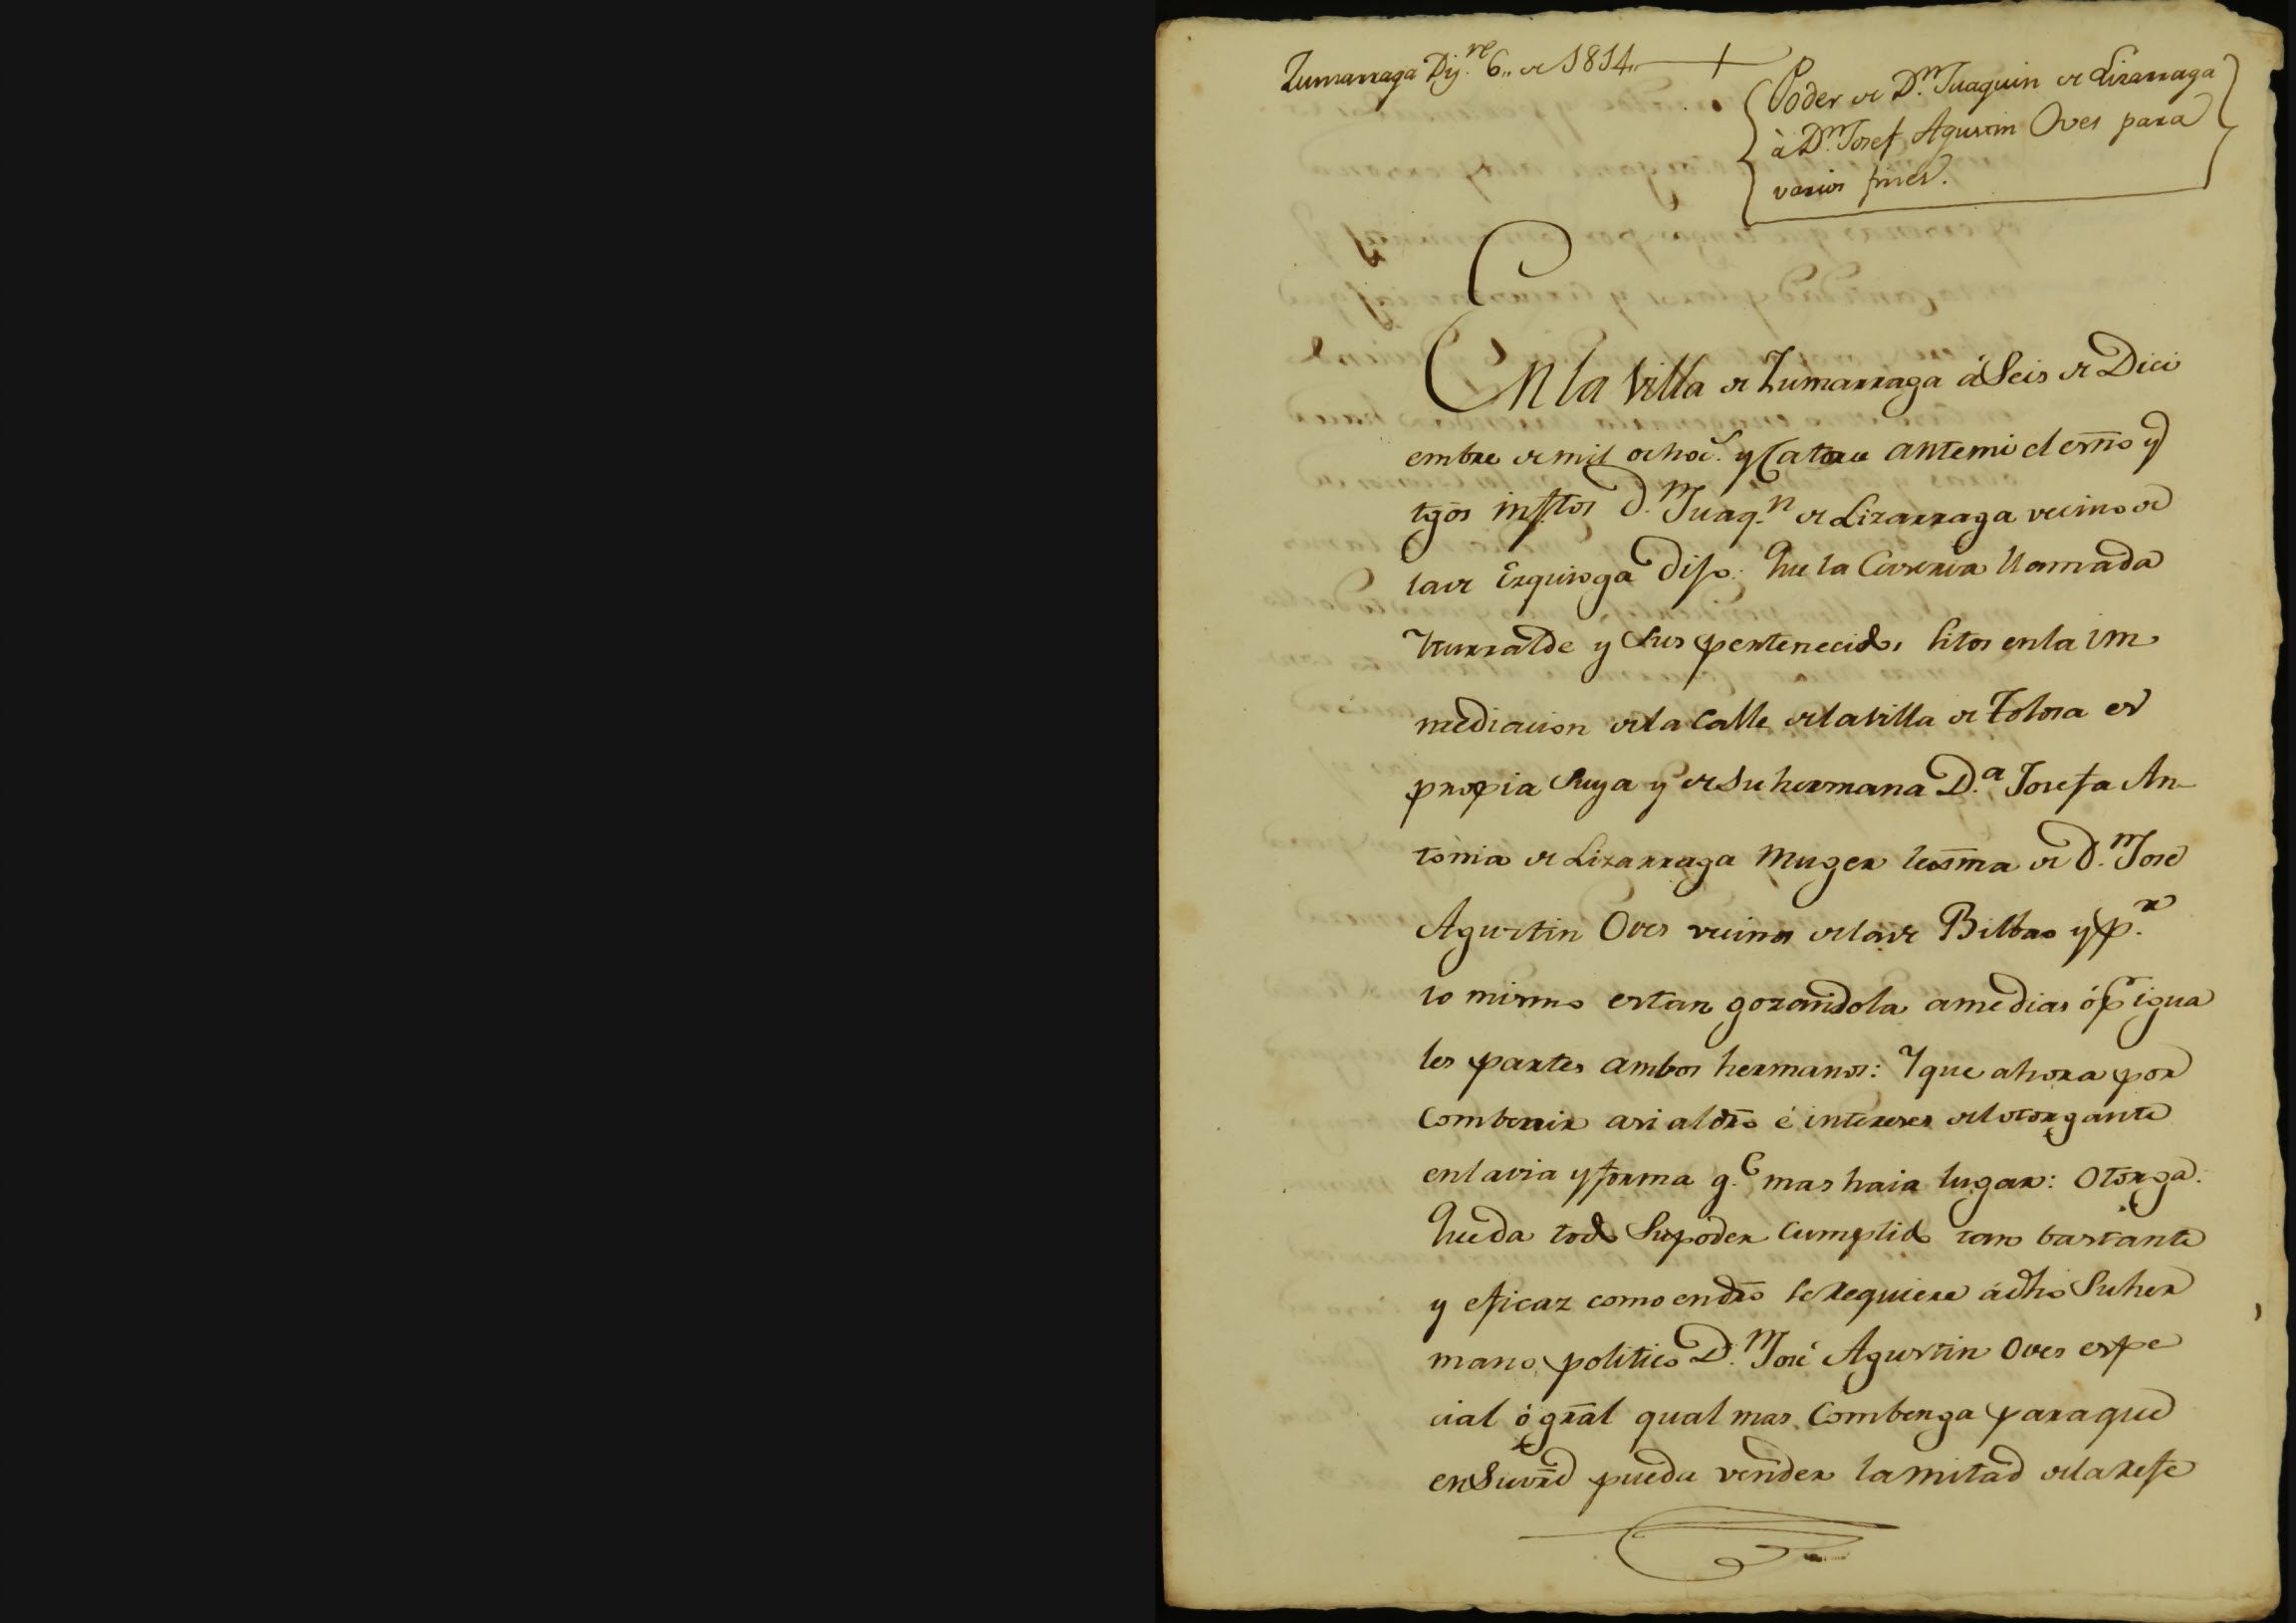 Zumarraga Dij.re 6,, de 1814,,
Poder de D.n Juaquin de Lizarraga
à D.n Josef Agustin Oves para
varios fines.
En la Villa de Zumarraga á Seis de Dici
embre de mil ochoc.s y Catorce antemi el esno y
tgos insftos D.n Juaq.n de Lizarraga vecino de
lade Ezquioga dijo: Que la Caseria llamada
Yturralde y Sus pertenecidos sitos enla im
mediacion dela Calle dela Villa de Tolosa es
propia Suya y de Su hermana D.a Josefa An-
tonia de Lizarraga Muger lexma de D.n José
Agustin Oves vecinos delade Bilbao y p.r
lo mismo estan gozandola amedias ó p.r igua
les partes ambos hermanos: Y que ahora por
Combenir asi aldro é intereses del otorgante
enlavia y forma q.e mas haia lugar: Otorga:
Queda todo Supoder Cumplido tan bastante
y eficaz como endro Se Requiere ádho Suher
mano politico D.n José Agustin Oves espe
cial ó gral qual mas Combenga para que
en Su vrd pueda vender la mitad dela Refe